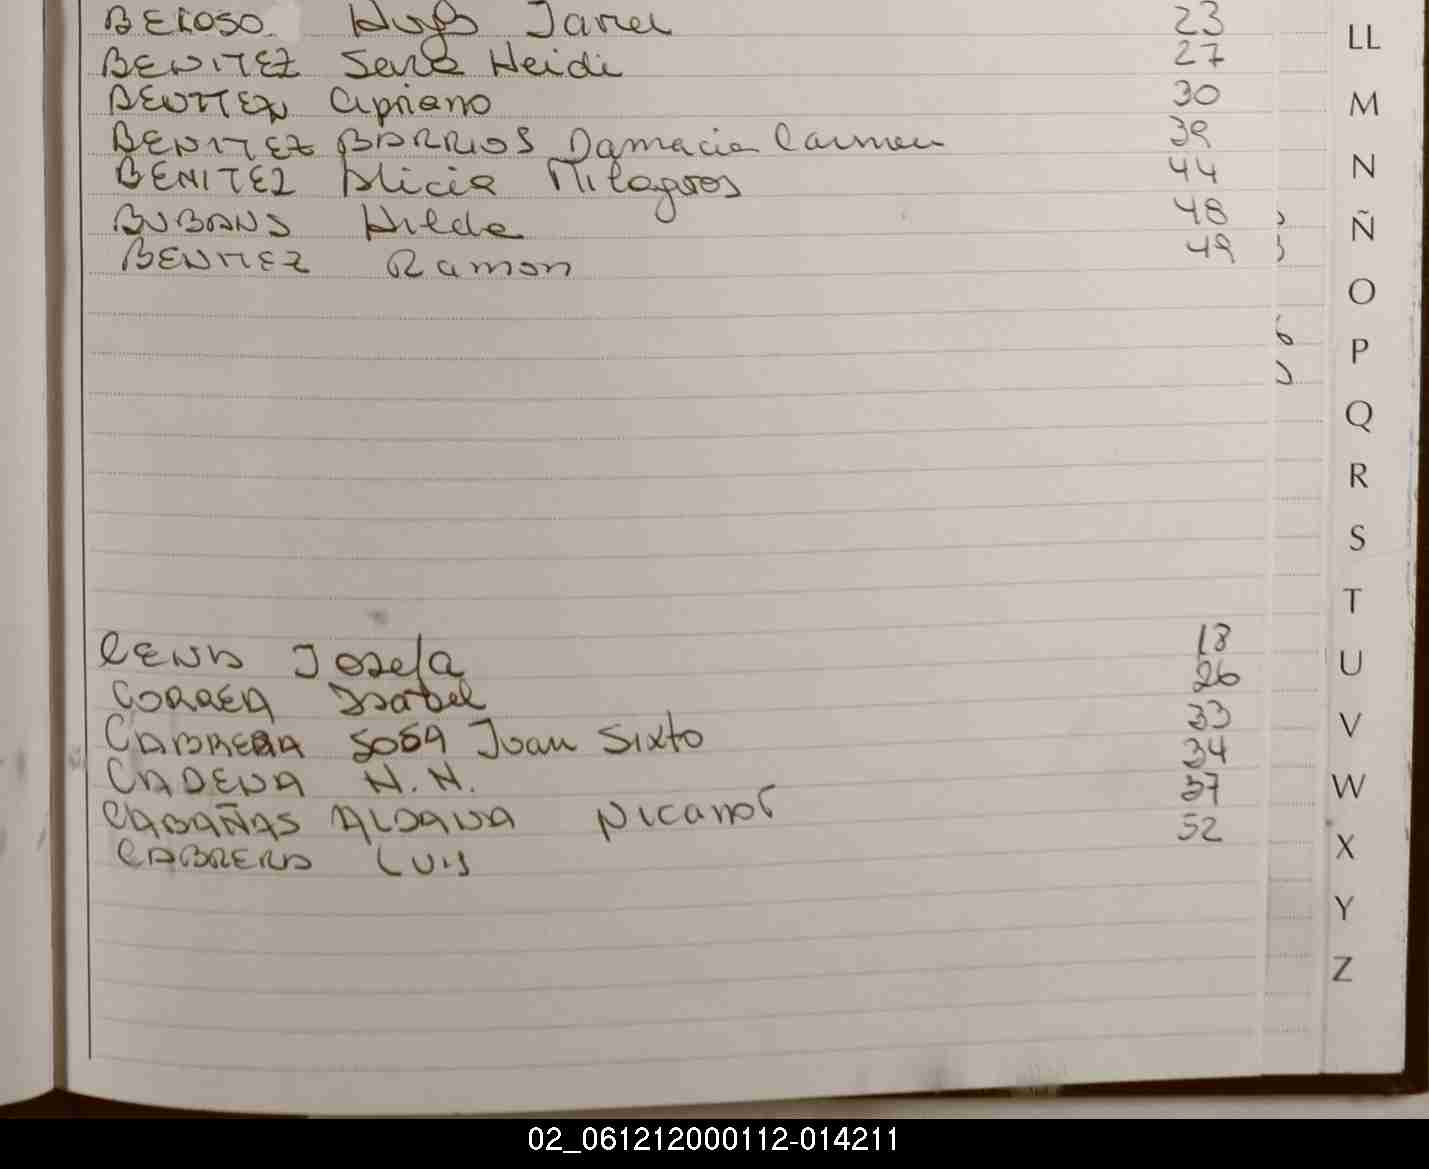 BENITEZ Sara Heidi 27
BENITEZ Cipriano 30
BENITEZ BARRIOS Damacia Carmen 39
BENITEZ Alicia Milagros 44
Hilda 48
BENITEZ Ramon 49
Josefa 18
CORREA Isabel 26
CABRERA SOSA Juan Sixto 33
CADENA N.N. 34
CABAÑAS ALDANA Nicanor 37
CABRERA LUIS 52
LL
M
N
Ñ
O
P
Q
R
S
T
U
V
W
X
Y
Z
02_061212000112-014211